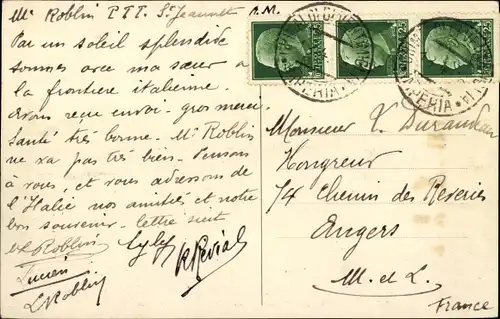 Mr Roblin P.T.T. St Jeannet A.M.
Par un soleil splendide
sommes avec ma sœur à
la frontière italienne.
avons reçu envoi - gros merci
Santé très bonne. Mr Roblin
ne va pas très bien. Pensons
à vous, et vous adressons de
l'Italie nos amitiés et notre
bon souvenir. lettre suit
Roblin
Lucien
L Roblin
IMPERIA
Monsieur V. Durandeau
Hongreur
74 Chemin des Reveries
Angers
M. et L.
France